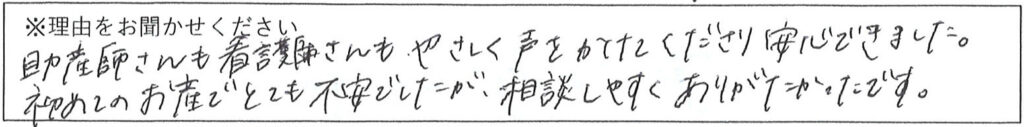 ※理由をお聞かせください
助産師さんも看護師さんも、やさしく声をかけてくださり安心できました。
初めてのお産でとても不安でしたが、相談しやすくありがたかったです。